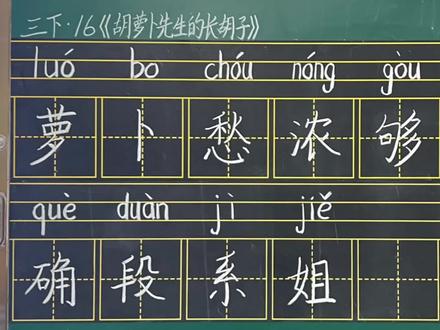 三下·16《胡萝卜先生的长胡子》
luó bo chóu nóng gòu
萝卜愁浓够
què duàn jì jiě
确段系姐